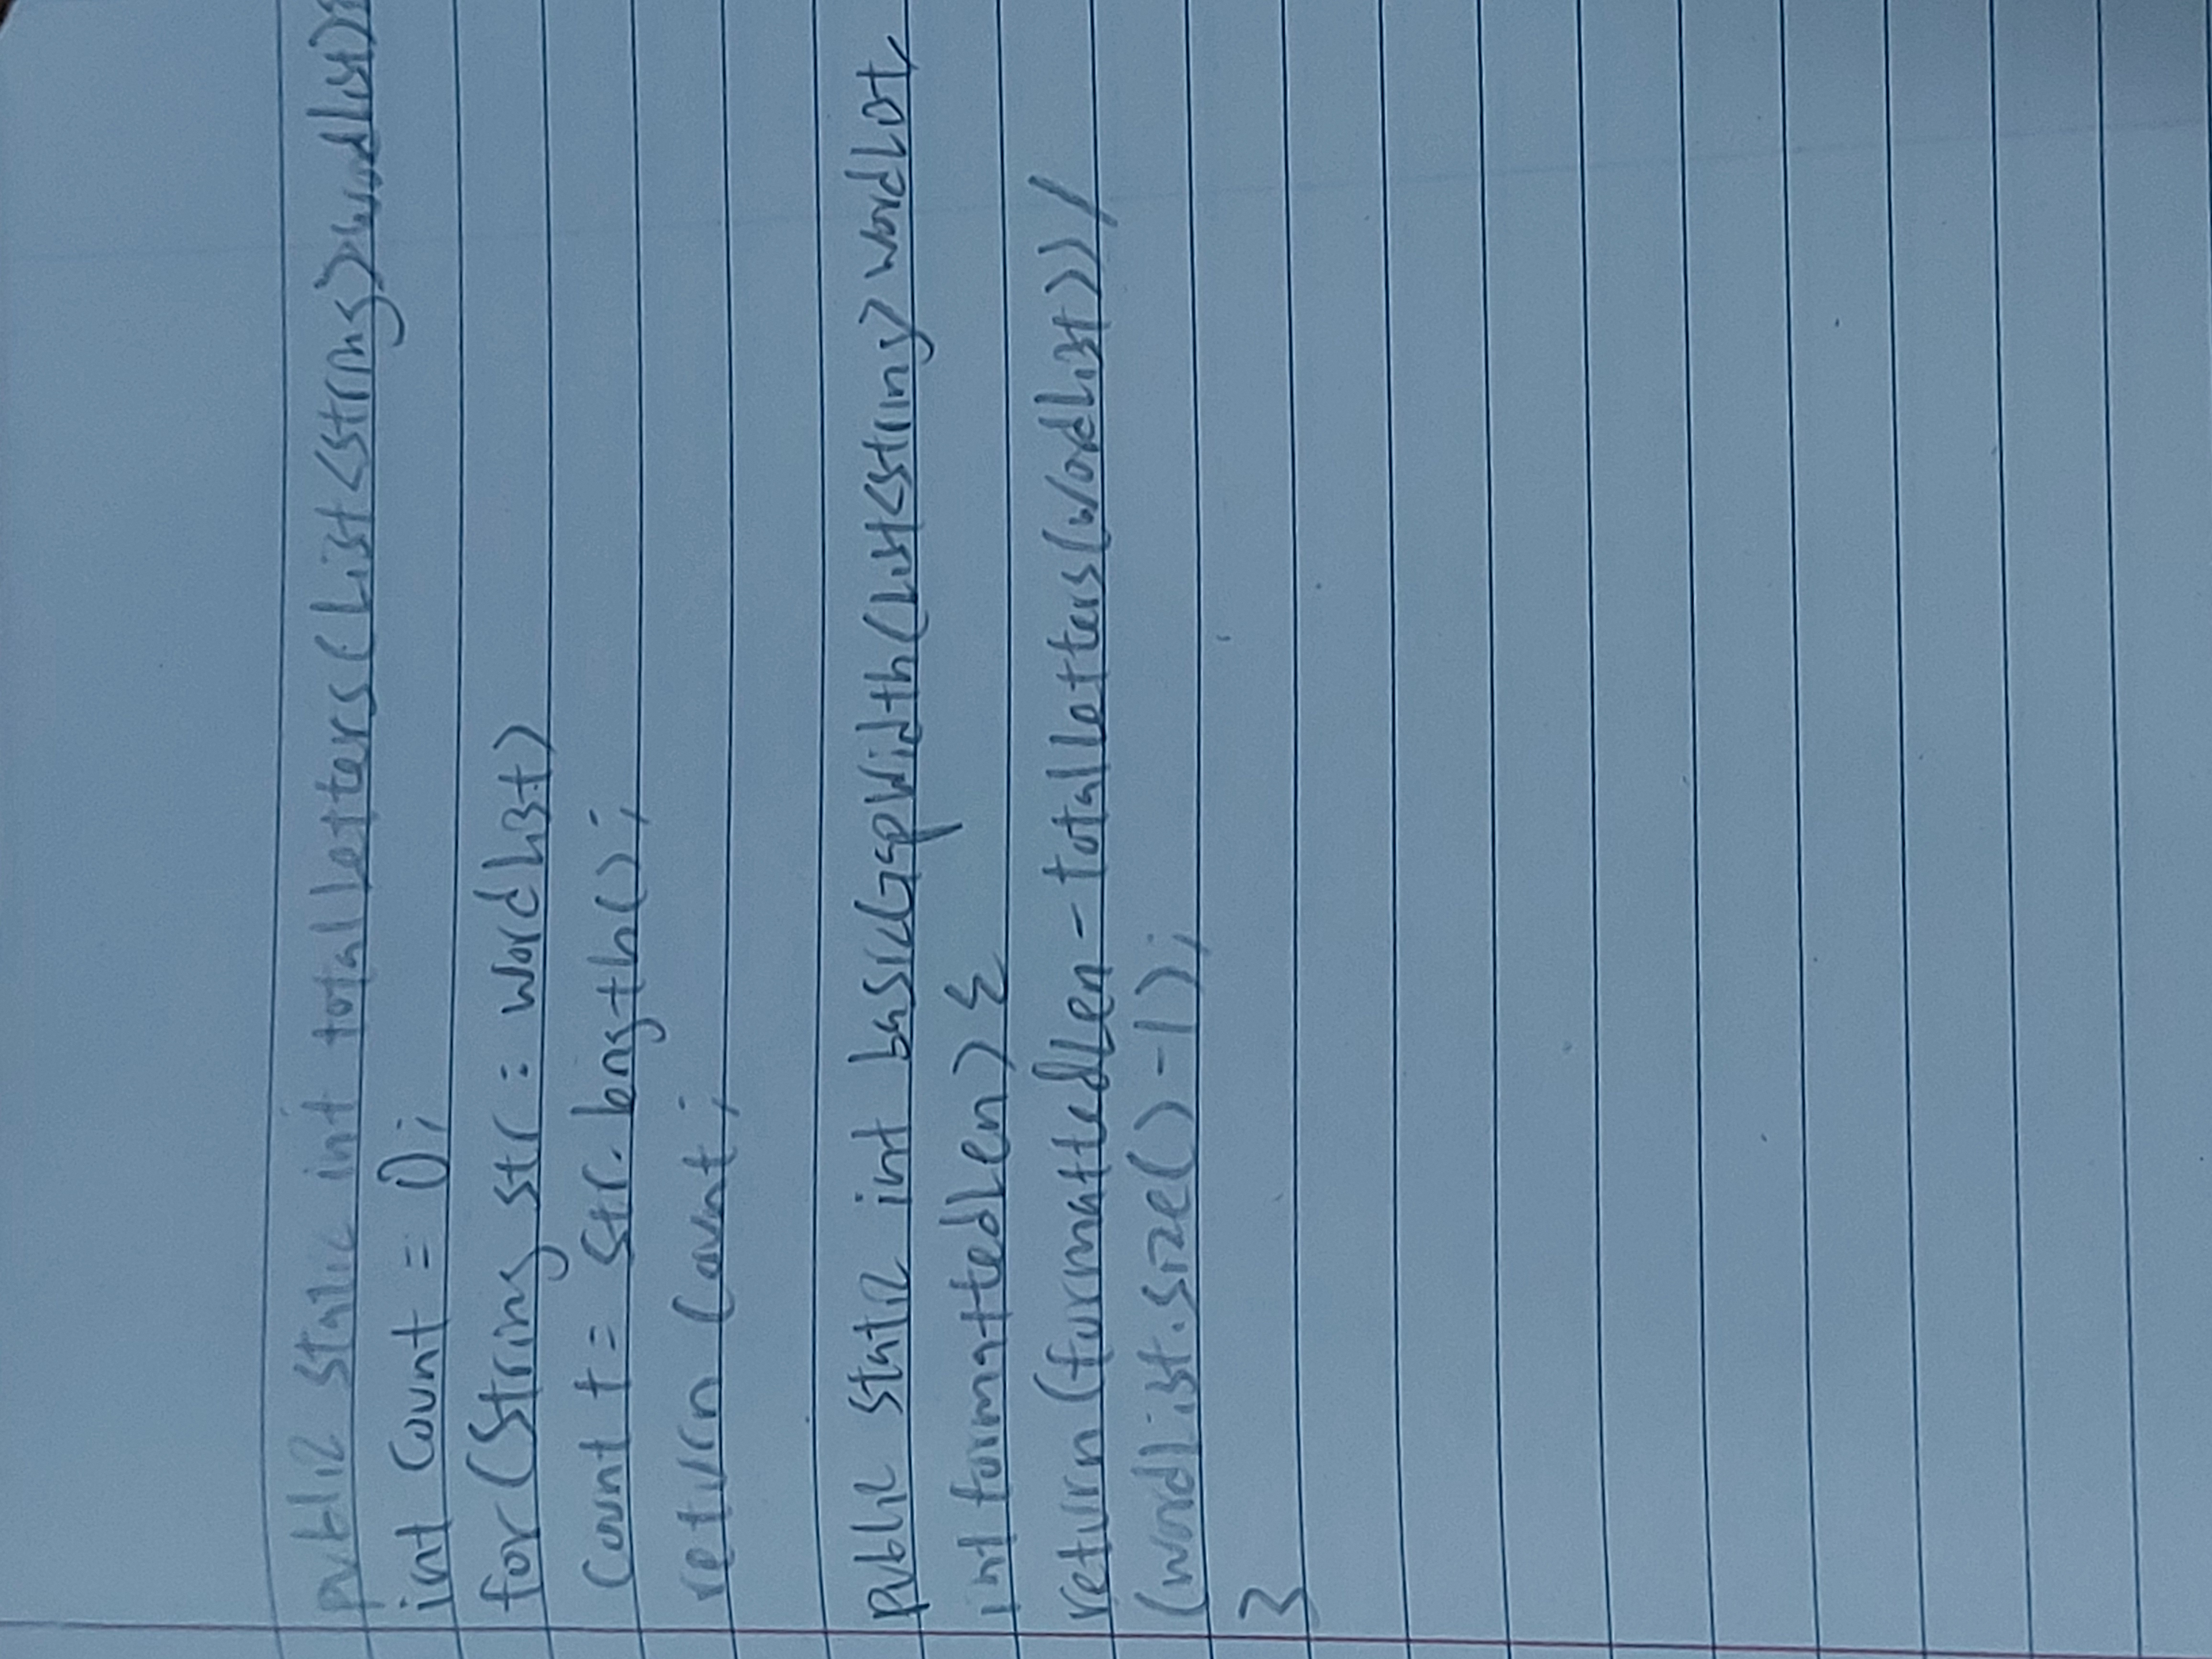 public static int totalLetters(List<String> wordList){
int count = 0;
for(String str : wordList)
count += str.length();
return count;
public static int basicGapWidth(List<String> wordList,
int formattedLen) {
return(formattedLen - totalLetters(wordList)) /
(wordList.size() - 1);
}